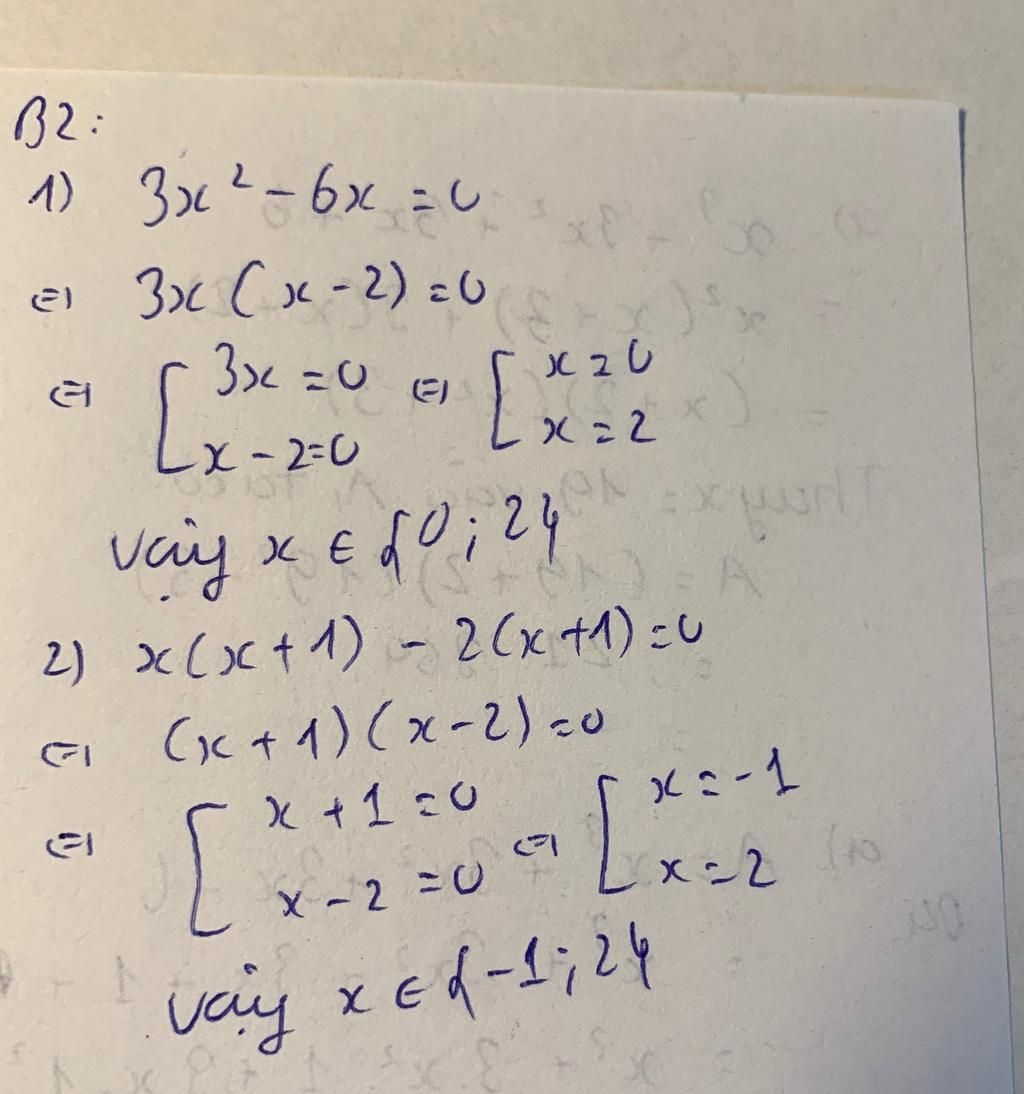 B2:
1) 3x² - 6x = 0
⇔ 3x (x - 2) = 0
⇔ [ 3x = 0 ⇔ [ x = 0
x - 2 = 0 x = 2
Vậy x ∈ {0; 2}
2) x(x + 1) - 2(x + 1) = 0
⇔ (x + 1)(x - 2) = 0
⇔ [ x + 1 = 0 ⇔ [ x = -1
x - 2 = 0 x = 2
Vậy x ∈ {-1; 2}